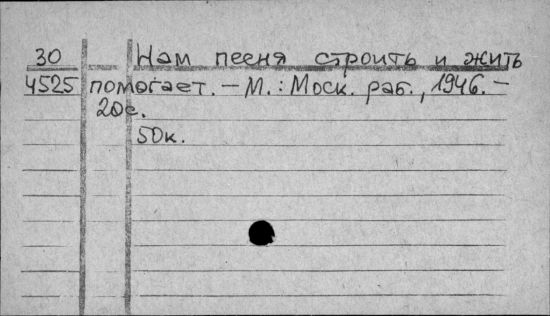 30 Нам песня строить и жить
4525 помогает. – М.: Моск. раб., 1946. –
20с.
50к.